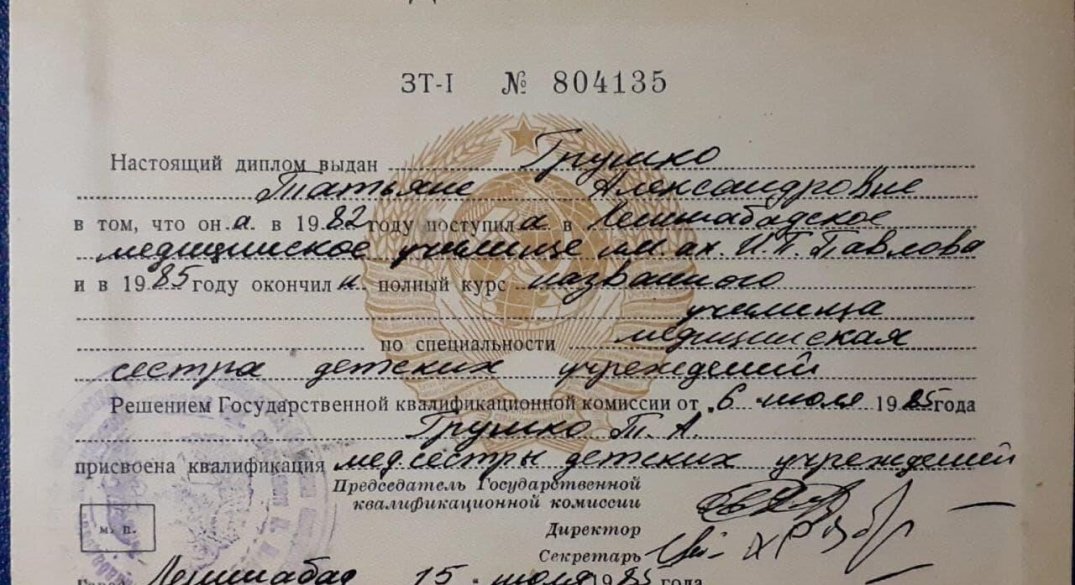 ЗТ-I № 804135
Настоящий диплом выдан Грушко
Татьяне Александровне
в том, что он а в 1982 году поступил а в Ленинабадское
медицинское училище им. ак. И.П. Павлова
и в 1985 году окончил а полный курс названного
училища
по специальности медицинская
сестра детских учреждений
Решением Государственной квалификационной комиссии от 6 июля 1985 года
Грушко Т. А.
присвоена квалификация медсестры детских учреждений
Председатель Государственной
квалификационной комиссии
Директор
Секретарь
м. п.
Город Ленинабад 15 июля 1985 года